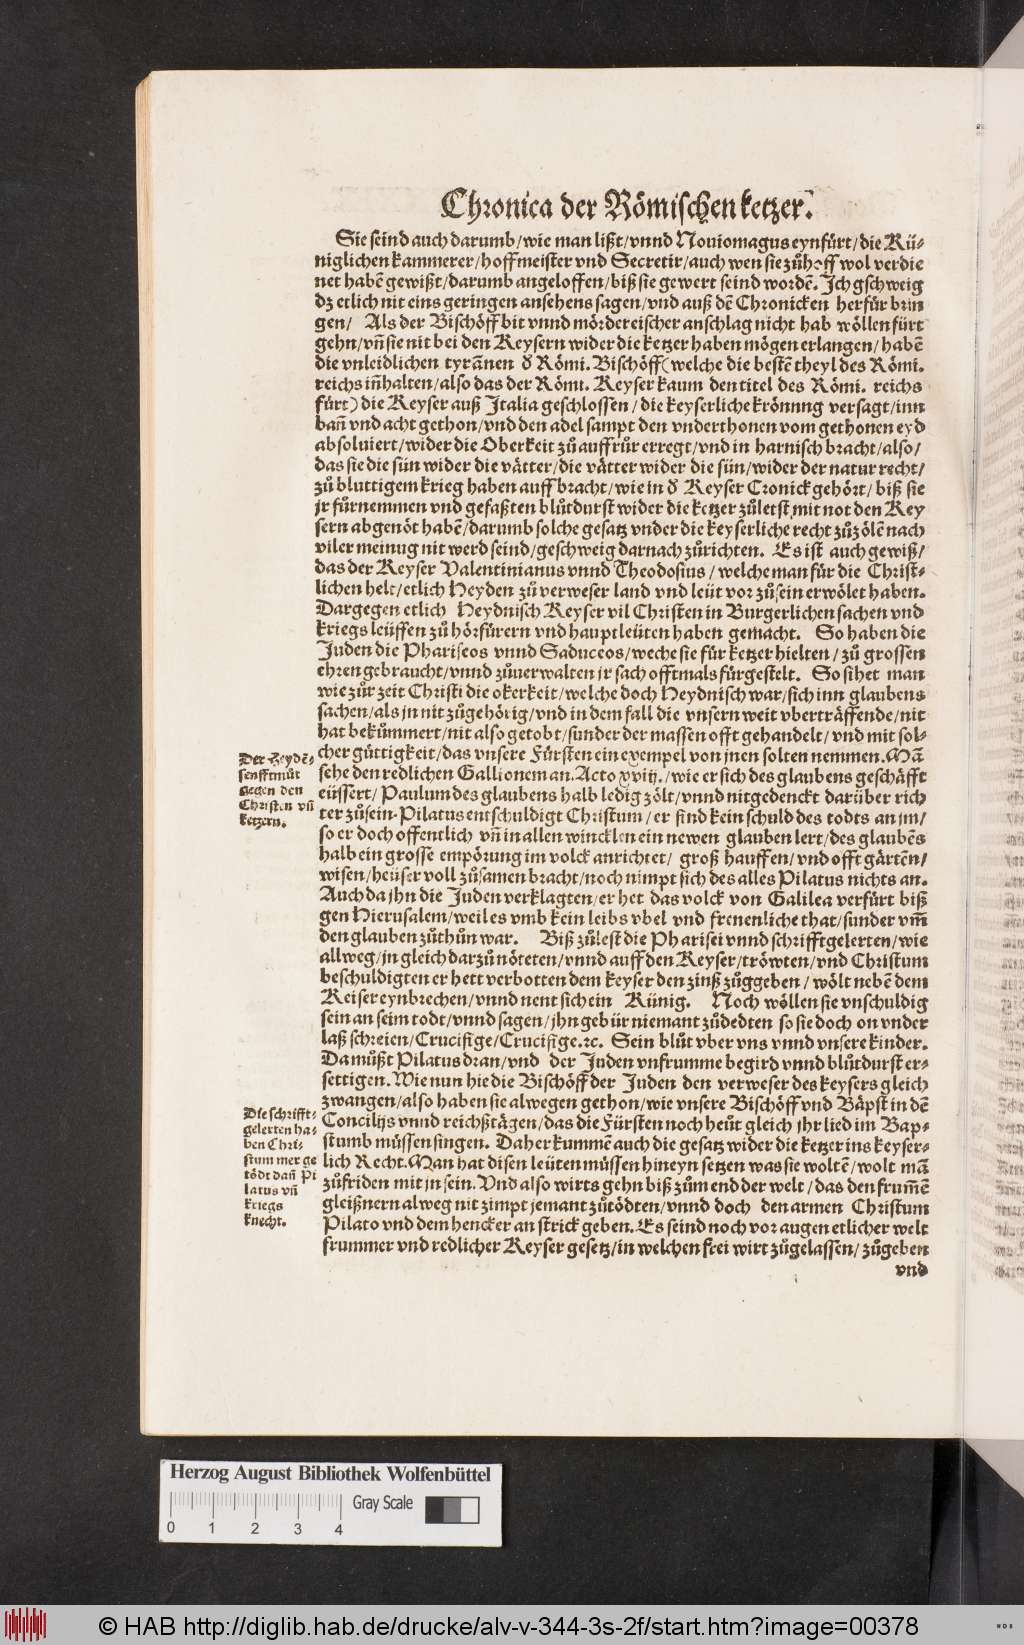 Chronica der Römischen ketzer.
Sie seind auch darumb/wie man lißt/vnnd Nouiomagus eynfürt/die Kü-
niglichen kammerer/hoffmeister vnd Secretir/auch wen sie zůhoff wol verdie
net habē gewißt/darumb angeloffen/biß sie gewert seind wordē. Ich gschweig
dz etlich nit eins geringen ansehens sagen/vnd auß dē Chronicken herfür brin
gen/ Als der Bischöff bit vnnd mördereischer anschlag nicht hab wöllen fürt
gehn/vñ sie nit bei den Keysern wider die ketzer haben mögen erlangen/habē
die vnleidlichen tyrannen ð Römi. Bischöff (welche die bestē theyl des Römi.
reichs iñhalten/also das der Römi. Keyser kaum den titel des Römi. reichs
fürt) die Keyser auß Italia geschlossen/die keyserliche krönnng versagt/inn
bañ vnd acht gethon/vnd den adel sampt den vnderthonen vom gethonen eyd
absoluiert/wider die Oberkeit zů auffrůr erregt/vnd in harnisch bracht/also/
das sie die sün wider die vätter/die vätter wider die sün/wider der natur recht/
zů bluttigem krieg haben auffbracht/wie in ð Keyser Cronick gehört/biß sie
jr fürnemmen vnd gefaßten blůtdurst wider die ketzer zůletst mit not den Key
sern abgenöt habē/darumb solche gesatz vnder die keyserliche recht zůzölē nach
viler meinug nit werd seind/geschweig darnach zůrichten. Es ist auch gewiß/
das der Keyser Valentinianus vnnd Theodosius/welche man für die Christ-
lichen helt/etlich Heyden zů verweser land vnd leüt vor zůsein erwölet haben.
Dargegen etlich Heydnisch Keyser vil Christen in Burgerlichen sachen vnd
kriegs leüffen zů hörfürern vnd hauptleüten haben gemacht. So haben die
Juden die Phariseos vnnd Saduceos/weche sie für ketzer hielten/zů grossen
ehren gebraucht/vnnd zůuerwalten jr sach offtmals fürgestelt. So sihet man
wie zůr zeit Christi die okerkeit/welche doch Heydnisch war/sich inn glaubens
sachen/als jn nit zůgehörig/vnd in dem fall die vnsern weit vberträffende/nit
hat bekümmert/nit also getobt/sunder der massen offt gehandelt/vnd mit sol-
cher güttigkeit/das vnsere Fürsten ein exempel von jnen solten nemmen. Mā
sehe den redlichen Gallionem an. Acto xviij./wie er sich des glaubens geschäfft
eüssert/Paulum des glaubens halb ledig zölt/vnnd nit gedenckt darüber rich
ter zůsein. Pilatus entschuldigt Christum/er find kein schuld des todts an jm/
so er doch offentlich vñ in allen wincklen ein newen glauben lert/des glaubēs
halb ein grosse empörung im volck anrichtet/ groß hauffen/vnd offt gärtēn/
wisen/heüser voll zůsamen bracht/noch nimpt sich des alles Pilatus nichts an.
Auch da jhn die Juden verklagten/er het das volck von Galilea verfürt biß
gen Hierusalem/weil es vmb kein leibs vbel vnd freuenliche that/sunder vm̄
den glauben zůthůn war. Biß zůlest die Pharisei vnnd schrifftgelerten/wie
allweg/jn gleich darzů nöteten/vnnd auff den Keyser/tröwten/vnd Christum
beschuldigten er hett verbotten dem keyser den zinß zůggeben/wölt nebē dem
Keiser eynbrechen/vnnd nent sich ein Künig. Noch wöllen sie vnschuldig
sein an seim todt/vnnd sagen/jhn gebür niemant zůdedten so sie doch on vnder
laß schreien/Crucifige/Crucifige.ꝛc. Sein blůt vber vns vnnd vnsere kinder.
Da můßt Pilatus dran/vnd der Juden vnfrumme begird vnnd blůtdurst er-
settigen. Wie nun hie die Bischöff der Juden den verweser des keysers gleich
zwangen/also haben sie alwegen gethon/wie vnsere Bischöff vnd Bäpst in dē
Concilijs vnnd reichßtägen/das die Fürsten noch heüt gleich jhr lied im Bap-
stumb müssen singen. Daher kummē auch die gesatz wider die ketzer ins keyser-
lich Recht. Man hat disen leüten müssen hineyn setzen was sie woltē/wolt mā
zůfriden mit jn sein. Vnd also wirts gehn biß zům end der welt/das den frummē
gleißnern alweg nit zimpt jemant zůtödten/vnnd doch den armen Christum
Pilato vnd dem hencker an strick geben. Es seind noch vor augen etlicher welt
frummer vnd redlicher Keyser gesetz/in welchen frei wirt zůgelassen/zůgeben
vnd
Der Heydē-
senfftmůt
gegen den
Christen vñ
ketzern.
Die schrifft-
gelerten ha-
ben Chri-
stum mer ge
tödt dañ Pi
latus vñ
kriegs
knecht.
Herzog August Bibliothek Wolfenbüttel
Gray Scale
0 1 2 3 4
© HAB http://diglib.hab.de/drucke/alv-v-344-3s-2f/start.htm?image=00378